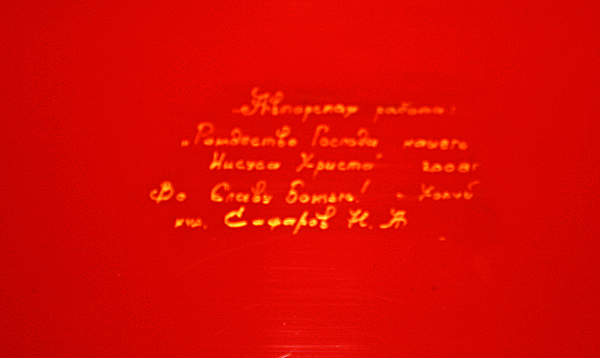 Авторская работа:
„Рождество Господа нашего
Иисуса Христа" 2008г
Во Славу Божью! - Холуй
худ. Сафаров Н. А